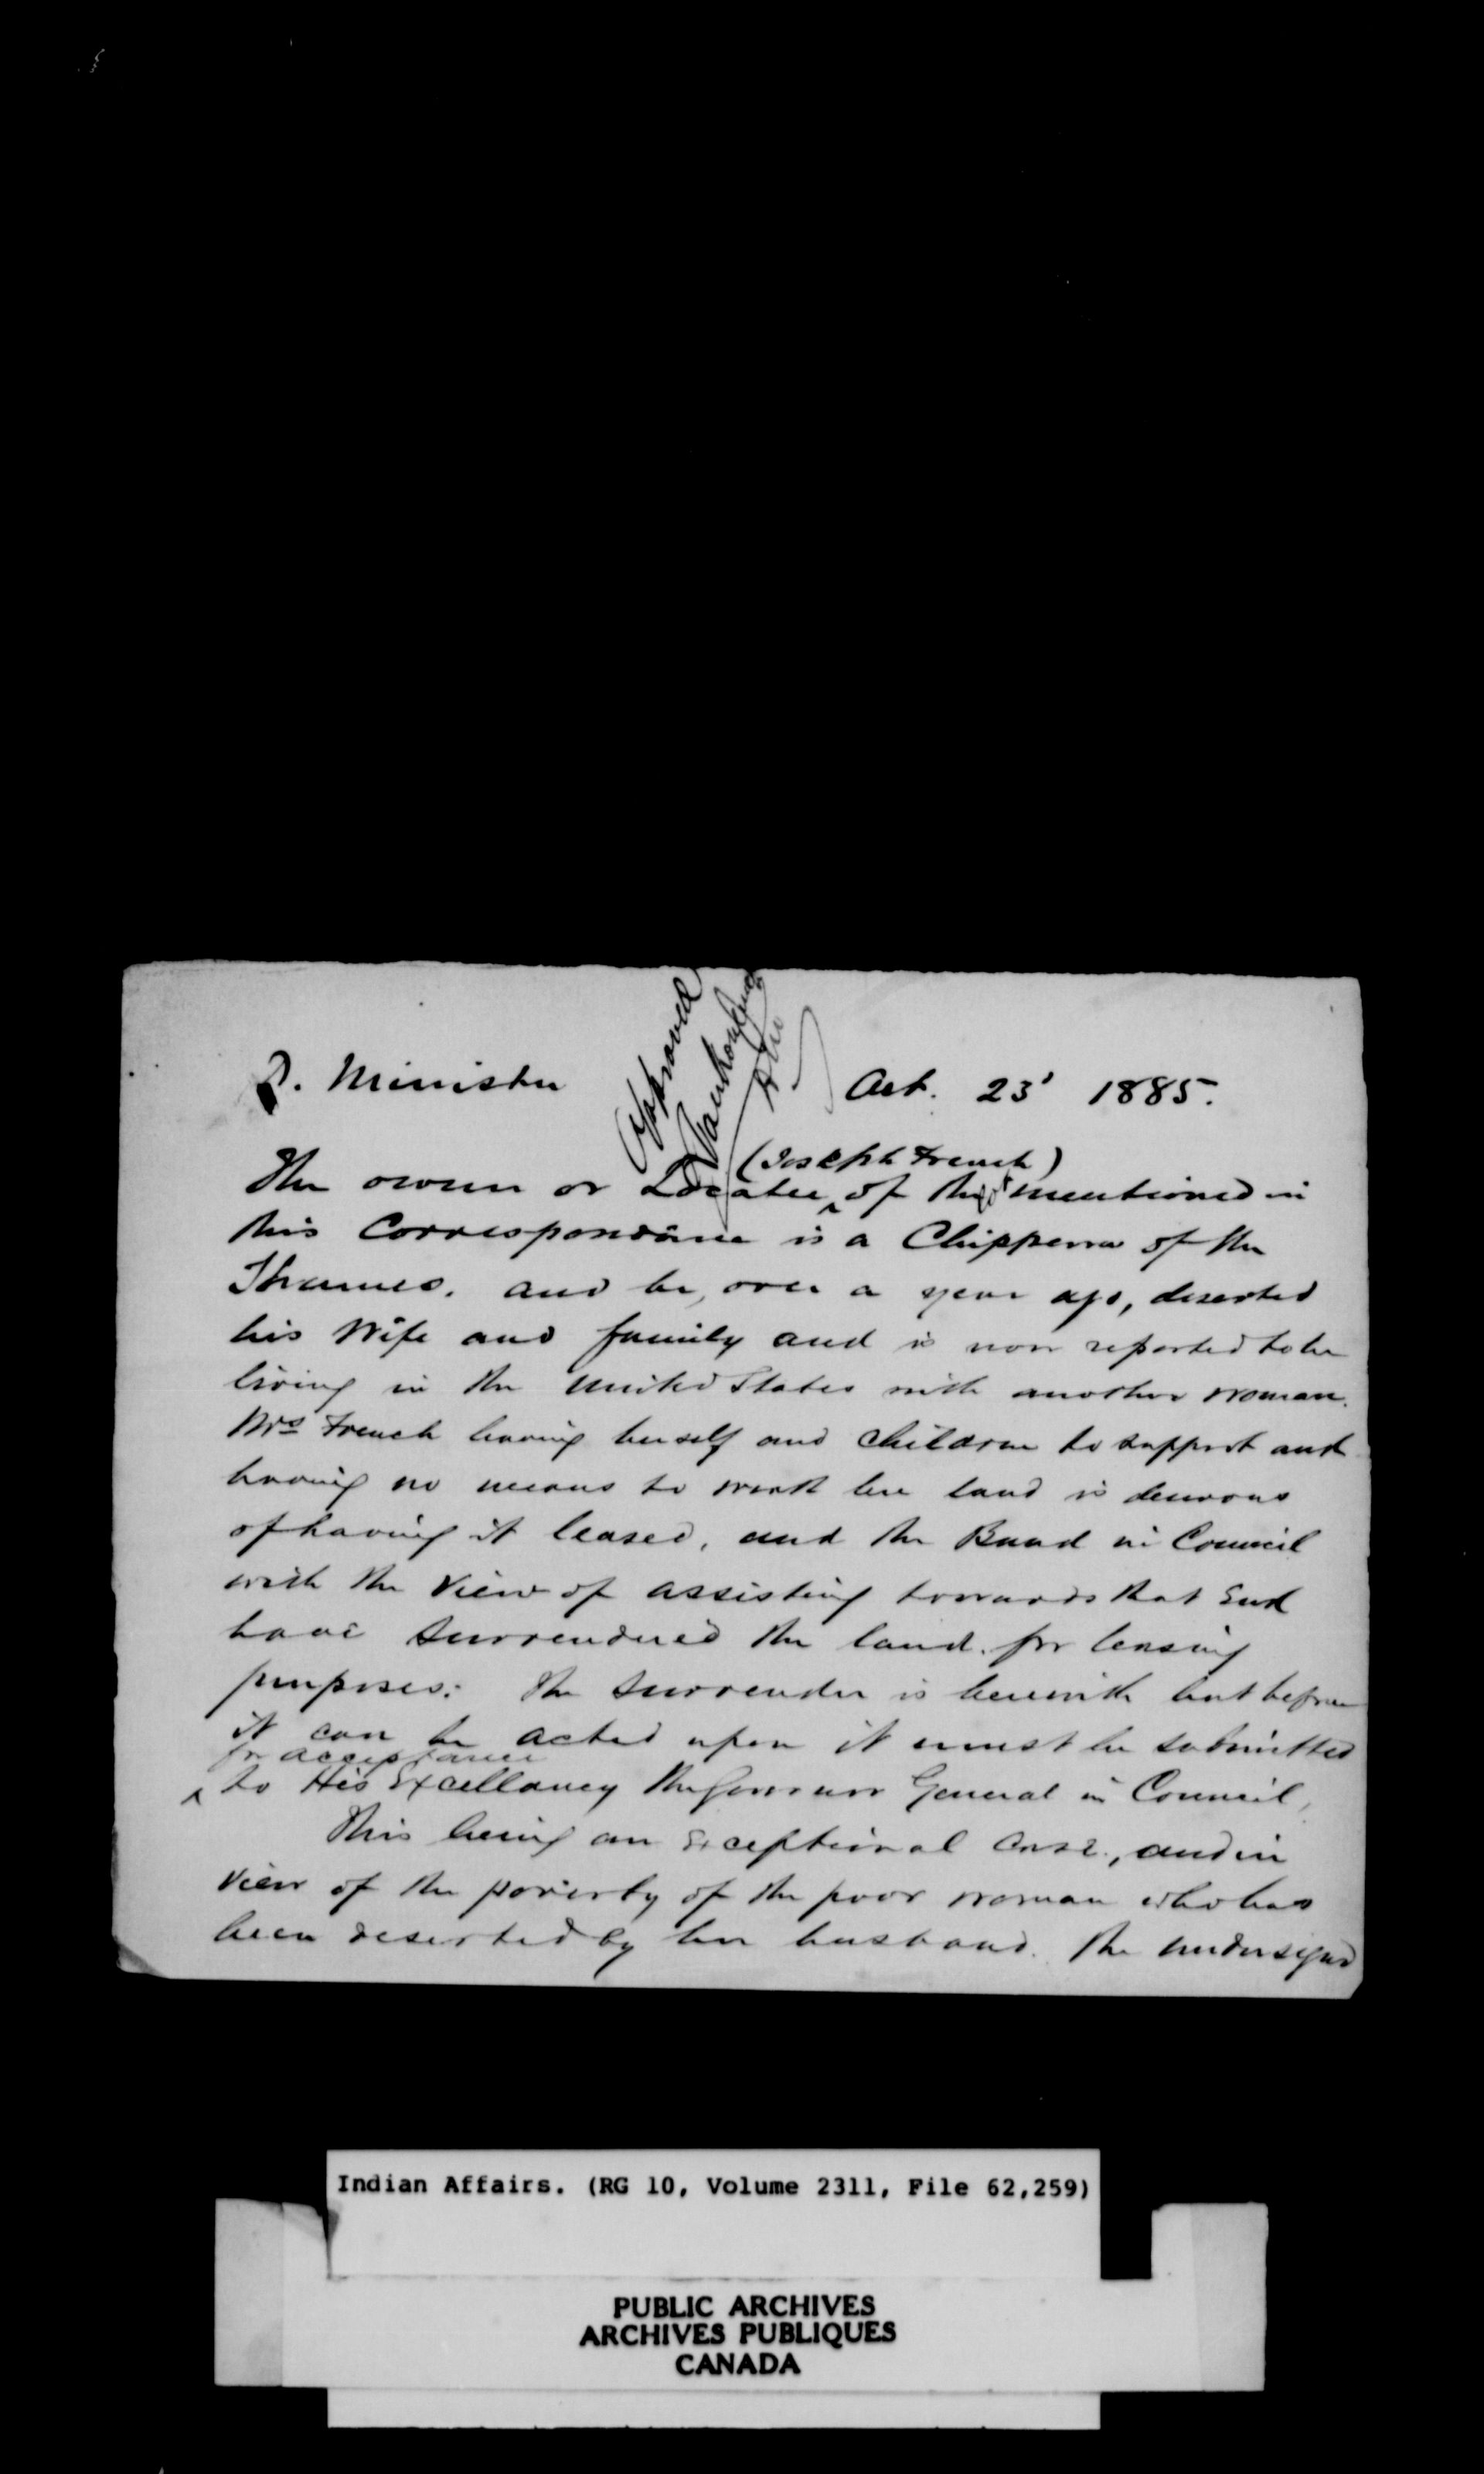 Approved
D. Minister
Oct. 23' 1885.
(Joseph French)
The owner or Locatee of the mentioned in
this Correspondence is a Chippewa of the
Thames. and he, over a year ago, deserted
his Wife and family and is now reported to be
living in the United States with another woman.
Mrs French having herself and children to support and
having no means to work her land is desirous
of having it leased, and the Band in Council
with the View of assisting towards that End
have surrendered the land. for leasing
purposes. The surrender is herewith but before
it can be acted upon it must be submitted
for acceptance
to His Excellency the Governor General in Council,
This being an Exceptional Case, and in
View of the poverty of the poor woman who has
been deserted by her husband. the undersigned
Indian Affairs. (RG 10, Volume 2311, File 62,259)
PUBLIC ARCHIVES
ARCHIVES PUBLIQUES
CANADA